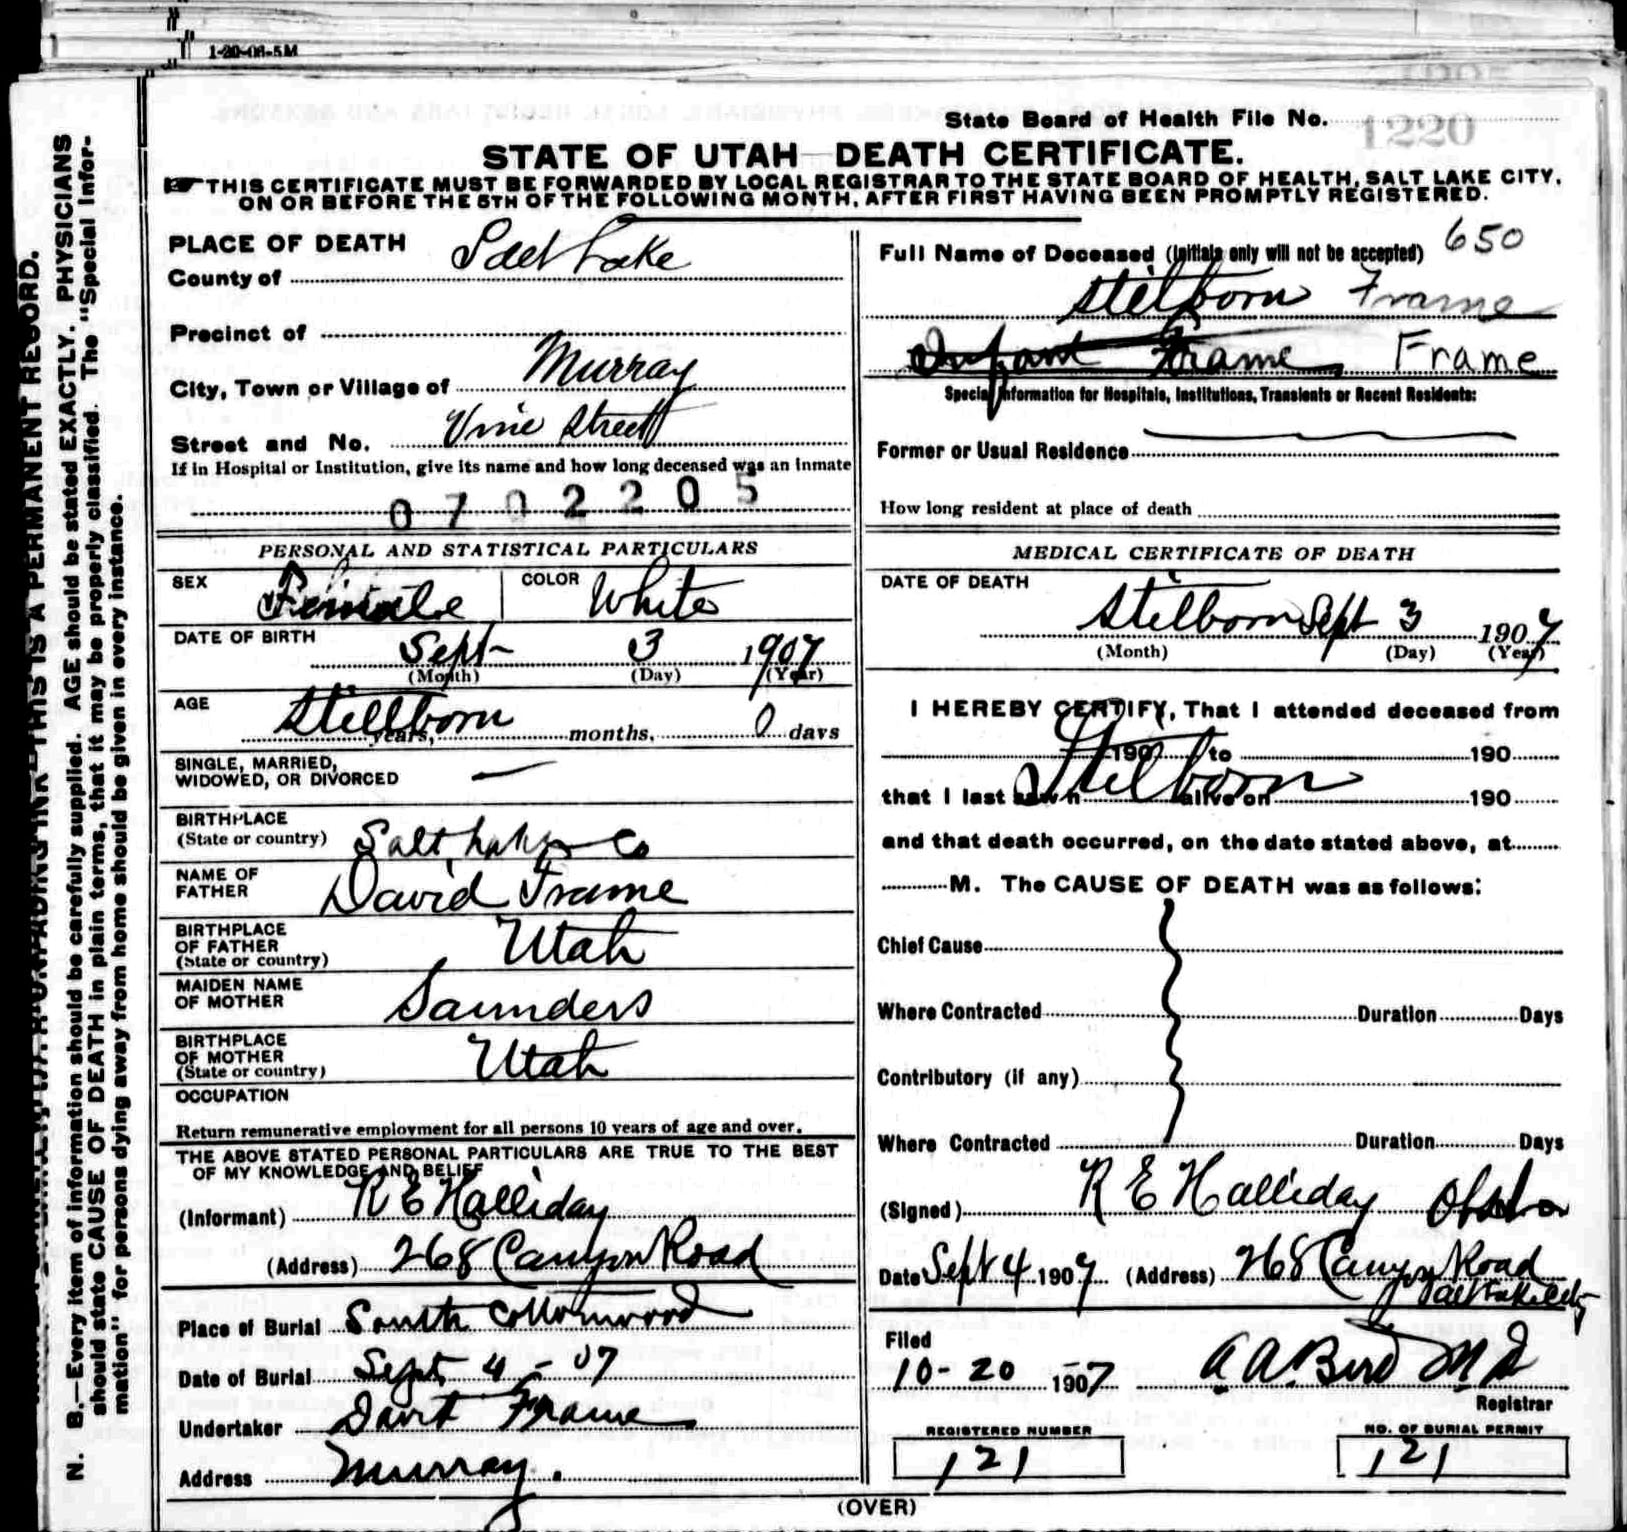 1-20-06-5M
State Board of Health File No. 1220
STATE OF UTAH—DEATH CERTIFICATE.
THIS CERTIFICATE MUST BE FORWARDED BY LOCAL REGISTRAR TO THE STATE BOARD OF HEALTH, SALT LAKE CITY,
ON OR BEFORE THE 5TH OF THE FOLLOWING MONTH, AFTER FIRST HAVING BEEN PROMPTLY REGISTERED.
N. B.—Every item of information should be carefully supplied. AGE should be stated EXACTLY. PHYSICIANS
should state CAUSE OF DEATH in plain terms, that it may be properly classified. The "Special Infor-
mation" for persons dying away from home should be given in every instance.
THIS IS A PERMANENT RECORD.
PLACE OF DEATH
County of Salt Lake
Precinct of
City, Town or Village of Murray
Street and No. Vine Street
If in Hospital or Institution, give its name and how long deceased was an inmate
0702205
PERSONAL AND STATISTICAL PARTICULARS
SEX Female COLOR White
DATE OF BIRTH
Sept 3 1907
(Month) (Day) (Year)
AGE
Stillborn years, months, 0 days
SINGLE, MARRIED,
WIDOWED, OR DIVORCED —
BIRTHPLACE
(State or country) Salt Lake Co
NAME OF
FATHER David Frame
BIRTHPLACE
OF FATHER
(State or country) Utah
MAIDEN NAME
OF MOTHER Saunders
BIRTHPLACE
OF MOTHER
(State or country) Utah
OCCUPATION
Return remunerative employment for all persons 10 years of age and over.
THE ABOVE STATED PERSONAL PARTICULARS ARE TRUE TO THE BEST
OF MY KNOWLEDGE AND BELIEF
(Informant) R E Halliday
(Address) 268 Canyon Road
Place of Burial South Cottonwood
Date of Burial Sept 4 - 07
Undertaker Frame
Address Murray.
Full Name of Deceased (Initials only will not be accepted) 650
Stilborn Frame
Infant Frame Frame
Special Information for Hospitals, Institutions, Transients or Recent Residents:
Former or Usual Residence
How long resident at place of death
MEDICAL CERTIFICATE OF DEATH
DATE OF DEATH
Stilborn Sept 3 1907
(Month) (Day) (Year)
I HEREBY CERTIFY, That I attended deceased from
190 to 190
Stilborn
that I last saw h alive on 190
and that death occurred, on the date stated above, at
M. The CAUSE OF DEATH was as follows:
Chief Cause
Where Contracted Duration Days
Contributory (if any)
Where Contracted Duration Days
(Signed) R E Halliday
Date Sept 4 1907 (Address) 268 Canyon Road
Salt Lake City
Filed
10-20 1907 A A. Bird M D
Registrar
REGISTERED NUMBER
121
NO. OF BURIAL PERMIT
121
(OVER)